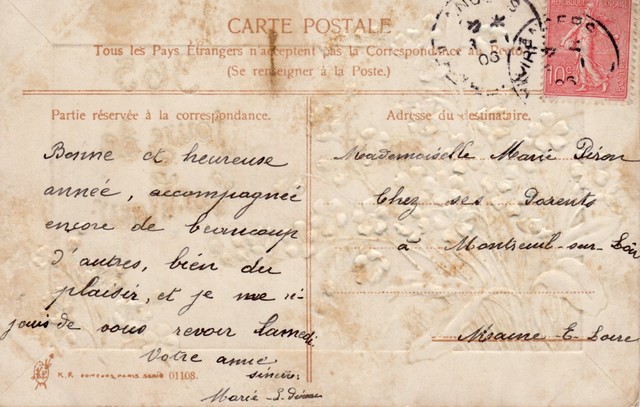 CARTE POSTALE
Tous les Pays Étrangers n'acceptent pas la Correspondance au Recto
(Se renseigner à la Poste.)
Partie réservée à la correspondance.
Bonne et heureuse
année, accompagnée
encore de beaucoup
d'autres, bien du
plaisir, et je me ré-
jouis de vous revoir Samedi
Votre amie
sincère
Marie
K.F. EDITEURS, PARIS SERIE 01108.
Adresse du destinataire.
Mademoiselle Marie Piron
Chez ses Parents
à Montreuil-sur-Loir
Maine-E-Loire
ANGERS
10c